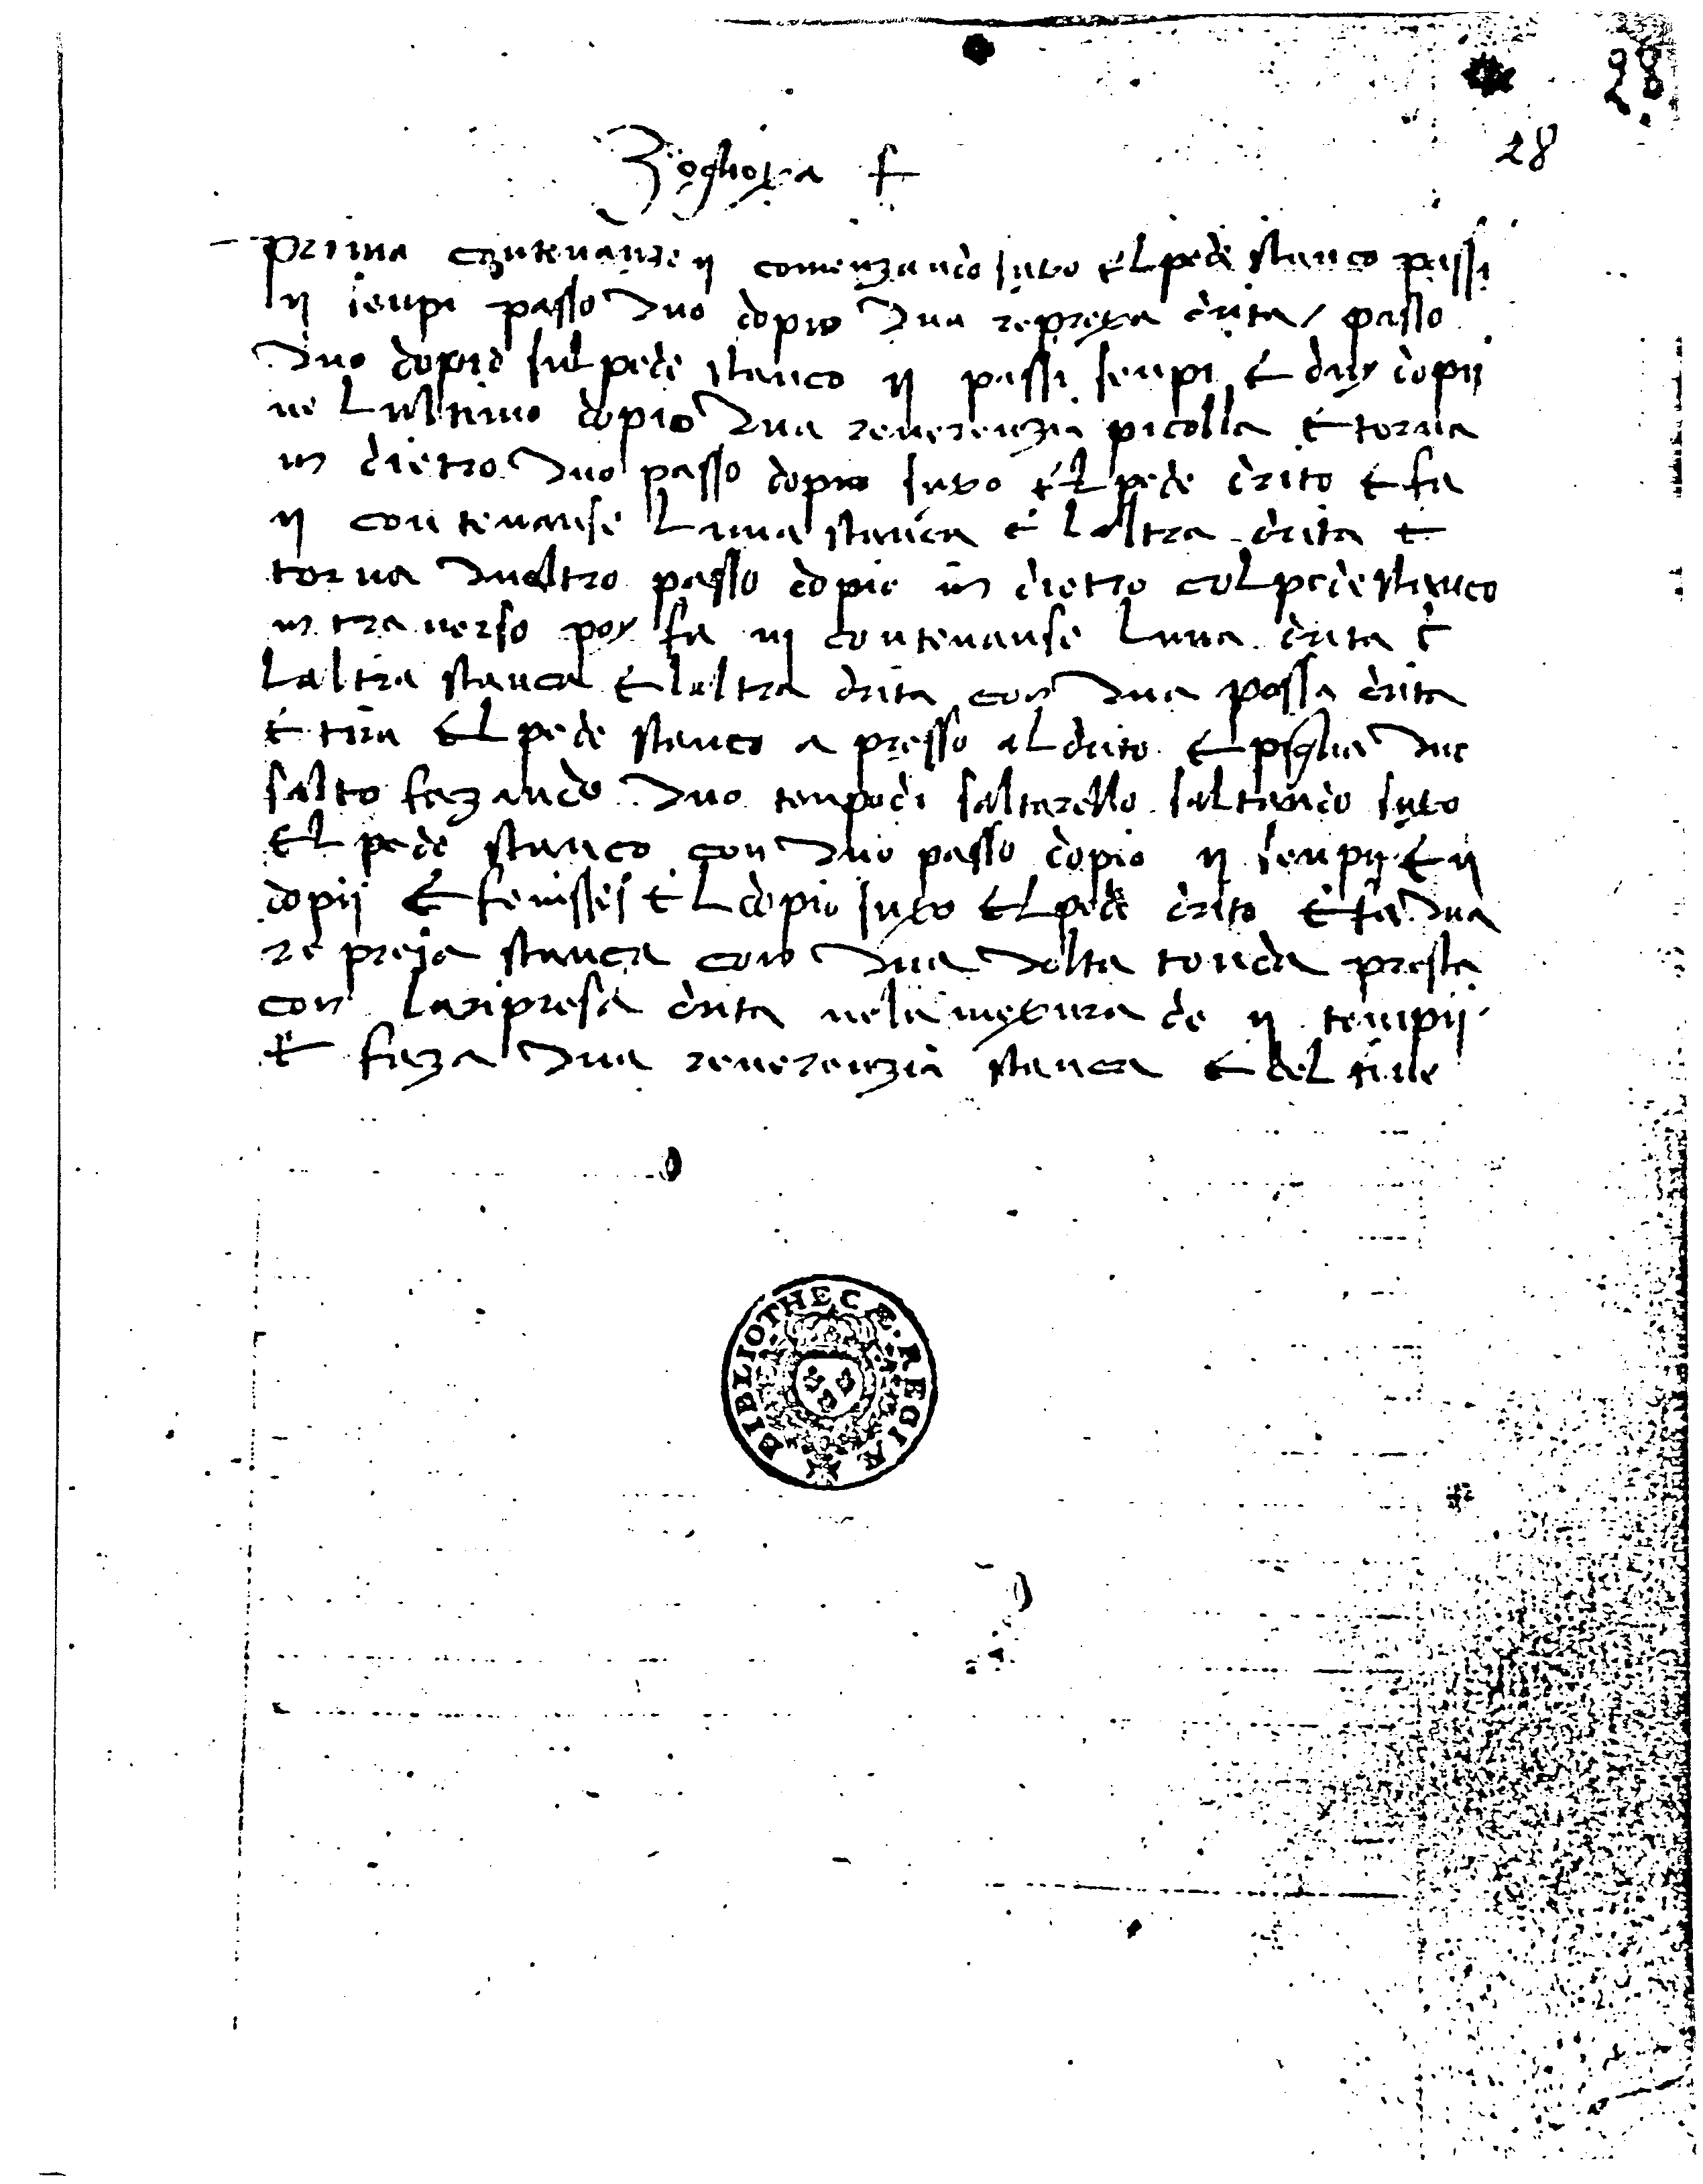 28
28
Zoghoxa f
prima contenanse ij comenzando suxo el pede stanco passi
ij senpi passo vno dopio vna reprexa drita / passo
vno dopio sul pede stanco ij passi senpi e duy dopij
ne lultimo dopio vna reuerenzia picolla e torna
in dietro vno passo dopio suxo el pede drito e fa
ij contenanse luna stanca e laltra drita e
torna vnaltro passo dopio in dietro col pede stanco
in trauerso poy fa iij contenanse luna drita e
laltra stanca e laltra drita con vna possa drita
e tira el pede stanco a presso al drito e piglia vno
salto fazando vno tenpo di saltarello saltando suxo
el pede stanco con vno passo dopio ij senpij e ij
dopij e fenisse el dopio suxo el pede drito e fa vna
represa stanca con vna volta tonda presta
con laripresa drita nela mexura de ij tempij
e faza vna reuerenzia stanca e del fine
BIBLIOTHECÆ REGIÆ